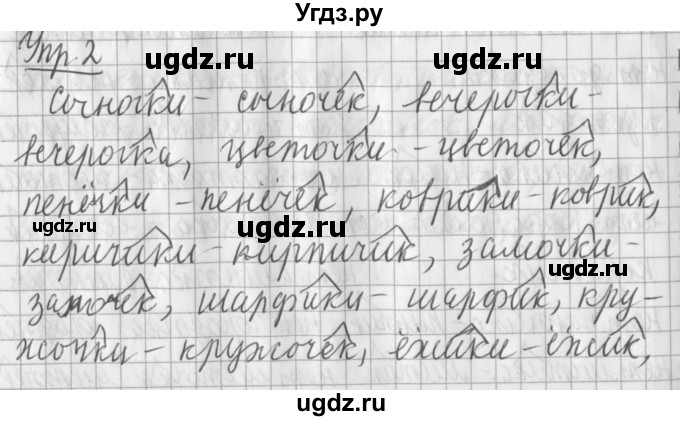 Угдз.ру
Упр. 2
ugdz.ru ugdz.ru
Сыночки – сыночек, вечерочки –
вечерочка, цветочки – цветочек,
ugdz.ru
пенёчки – пенёчек, коврики – коврик,
ugdz.ru ugdz.ru
киричики – кирпичик, замочки –
ugdz.ru
замочек, шарфики – шарфик, кру–
жочки – кружочек, ёжики – ёжик,
ugdz.ru
ugdz.ru